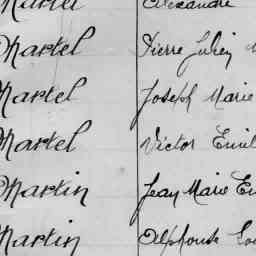 Martel Alexandre
Martel Pierre Julien
Martel Joseph Marie
Martel Victor Emil
Martin Jean Marie Em
Martin Alphonse Lou